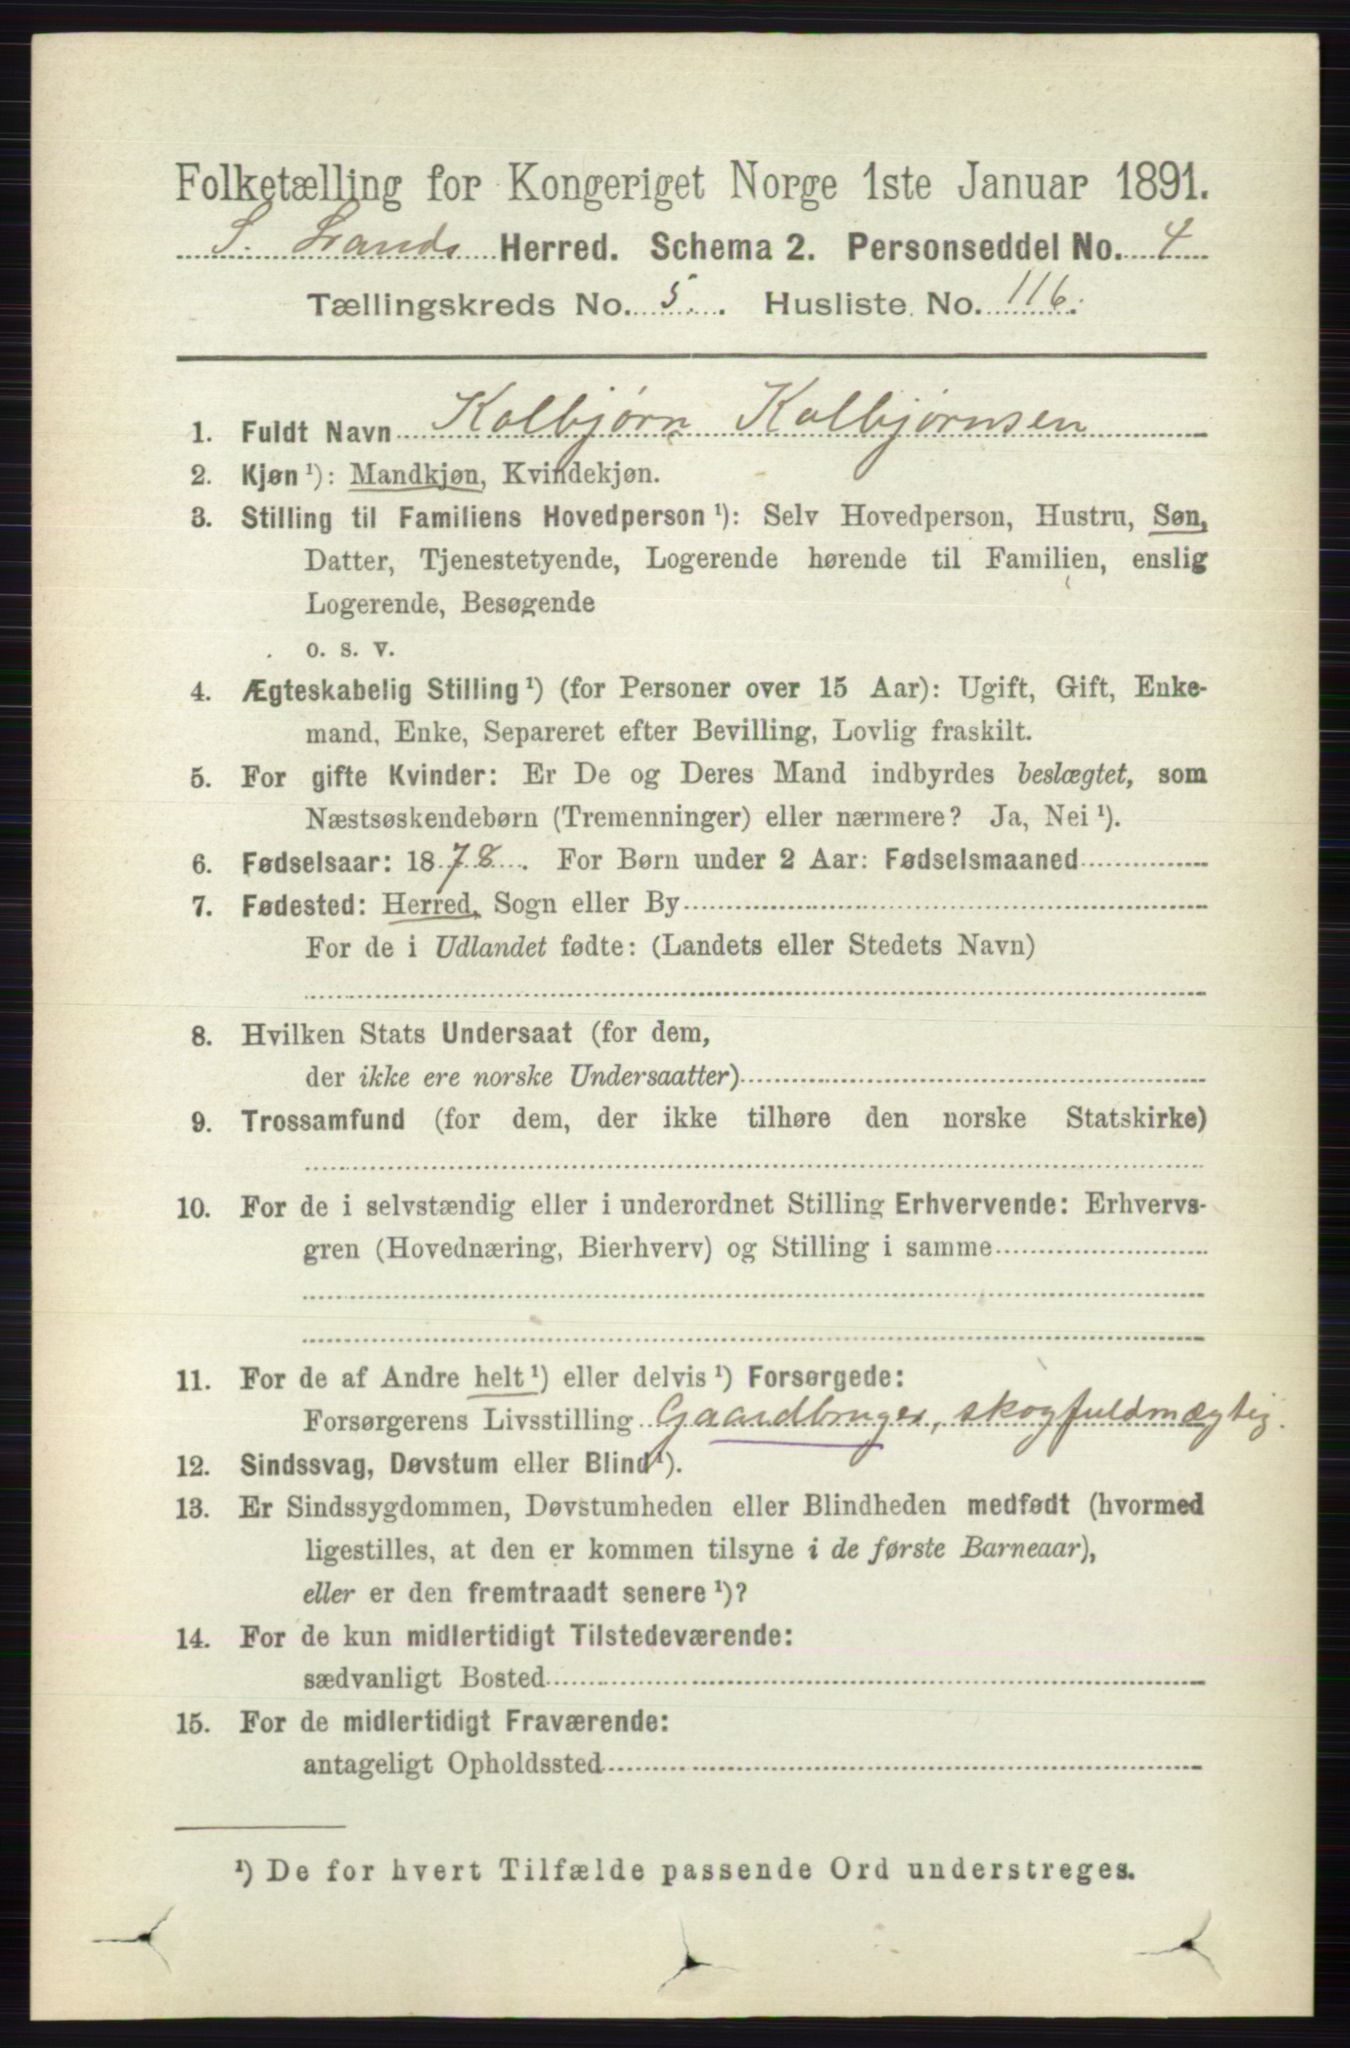 Folketælling for Kongeriget Norge 1ste Januar 1891.
S. Lands Herred. Schema 2. Personseddel No. 4
Tællingskreds No. 5. Husliste No. 116.
1. Fuldt Navn Kolbjørn Kolbjørnsen
2. Kjøn ¹): Mandkjøn, Kvindekjøn.
3. Stilling til Familiens Hovedperson ¹): Selv Hovedperson, Hustru, Søn,
Datter, Tjenestetyende, Logerende hørende til Familien, enslig
Logerende, Besøgende
o. s. v.
4. Ægteskabelig Stilling ¹) (for Personer over 15 Aar): Ugift, Gift, Enke-
mand, Enke, Separeret efter Bevilling, Lovlig fraskilt.
5. For gifte Kvinder: Er De og Deres Mand indbyrdes beslægtet, som
Næstsøskendebørn (Tremenninger) eller nærmere? Ja, Nei ¹).
6. Fødselsaar: 1878. For Børn under 2 Aar: Fødselsmaaned
7. Fødested: Herred, Sogn eller By
For de i Udlandet fødte: (Landets eller Stedets Navn)
8. Hvilken Stats Undersaat (for dem,
der ikke ere norske Undersaatter)
9. Trossamfund (for dem, der ikke tilhøre den norske Statskirke)
10. For de i selvstændig eller i underordnet Stilling Erhvervende: Erhvervs-
gren (Hovednæring, Bierhverv) og Stilling i samme
11. For de af Andre helt ¹) eller delvis ¹) Forsørgede:
Forsørgerens Livsstilling Gaardbruger, skogfuldmægtig.
12. Sindssvag, Døvstum eller Blind ¹).
13. Er Sindssygdommen, Døvstumheden eller Blindheden medfødt (hvormed
ligestilles, at den er kommen tilsyne i de første Barneaar),
eller er den fremtraadt senere ¹)?
14. For de kun midlertidigt Tilstedeværende:
sædvanligt Bosted
15. For de midlertidigt Fraværende:
antageligt Opholdssted
¹) De for hvert Tilfælde passende Ord understreges.